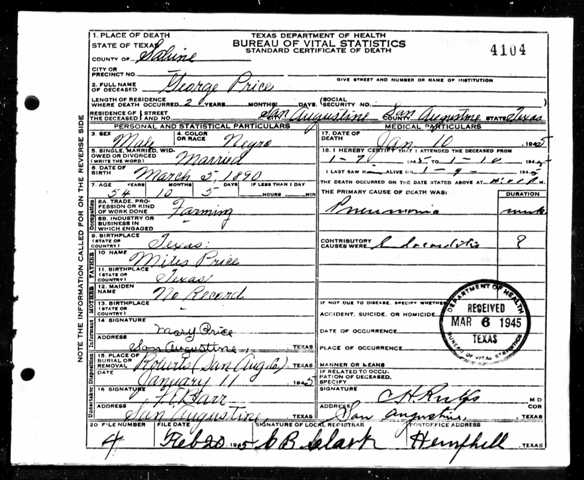 1. PLACE OF DEATH
STATE OF TEXAS
TEXAS DEPARTMENT OF HEALTH
BUREAU OF VITAL STATISTICS
STANDARD CERTIFICATE OF DEATH
4104
COUNTY OF Sabine
CITY OR
PRECINCT NO.
GIVE STREET AND NUMBER OR NAME OF INSTITUTION
2. FULL NAME
OF DECEASED George Price
LENGTH OF RESIDENCE
WHERE DEATH OCCURRED 2 YEARS MONTHS DAYS (SOCIAL SECURITY NO.
RESIDENCE OF THE DECEASED STREET AND NO. San Augustine COUNTY San Augustine STATE Texas
PERSONAL AND STATISTICAL PARTICULARS
MEDICAL PARTICULARS
3. SEX Male
4. COLOR OR RACE Negro
17. DATE OF DEATH Jan 10 1945
5. SINGLE, MARRIED, WIDOWED OR DIVORCED (WRITE THE WORD) Married
18. I HEREBY CERTIFY THAT I ATTENDED THE DECEASED FROM
1-7 1945 TO 1-10 1945
6. DATE OF BIRTH March 5, 1890
I LAST SAW ALIVE ON 1-9- 1945
7. AGE YEARS MONTHS DAYS IF LESS THAN 1 DAY
54 10 5 HOURS MIN
THE DEATH OCCURRED ON THE DATE STATED ABOVE AT M
THE PRIMARY CAUSE OF DEATH WAS:
DURATION
8A. TRADE, PROFESSION OR KIND OF WORK DONE Farming
Pneumonia
8B. INDUSTRY OR BUSINESS IN WHICH ENGAGED
9. BIRTHPLACE (STATE OR COUNTRY) Texas
CONTRIBUTORY CAUSES WERE
?
FATHER
10. NAME Miles Price
11. BIRTHPLACE (STATE OR COUNTRY) Texas
MOTHER
12. MAIDEN NAME No Record
13. BIRTHPLACE (STATE OR COUNTRY)
IF NOT DUE TO DISEASE, SPECIFY WHETHER:
ACCIDENT, SUICIDE, OR HOMICIDE
DATE OF OCCURRENCE
DEPARTMENT OF HEALTH
RECEIVED
MAR 6 1945
TEXAS
BUREAU OF VITAL STATISTICS
Informant
14. SIGNATURE Mary Price
ADDRESS San Augustine, TEXAS
PLACE OF OCCURRENCE
15. PLACE OF BURIAL OR REMOVAL
MANNER OR MEANS
January 11 1945
IF RELATED TO OCCUPATION OF DECEASED, SPECIFY
16. SIGNATURE
SIGNATURE M D
COR
ADDRESS San Augustine, TEXAS
ADDRESS San Augustine, TEXAS
20. FILE NUMBER FILE DATE SIGNATURE OF LOCAL REGISTRAR POSTOFFICE ADDRESS
4 Feb 20 1945 C B Clark Hemphill TEXAS
NOTE THE INFORMATION CALLED FOR ON THE REVERSE SIDE